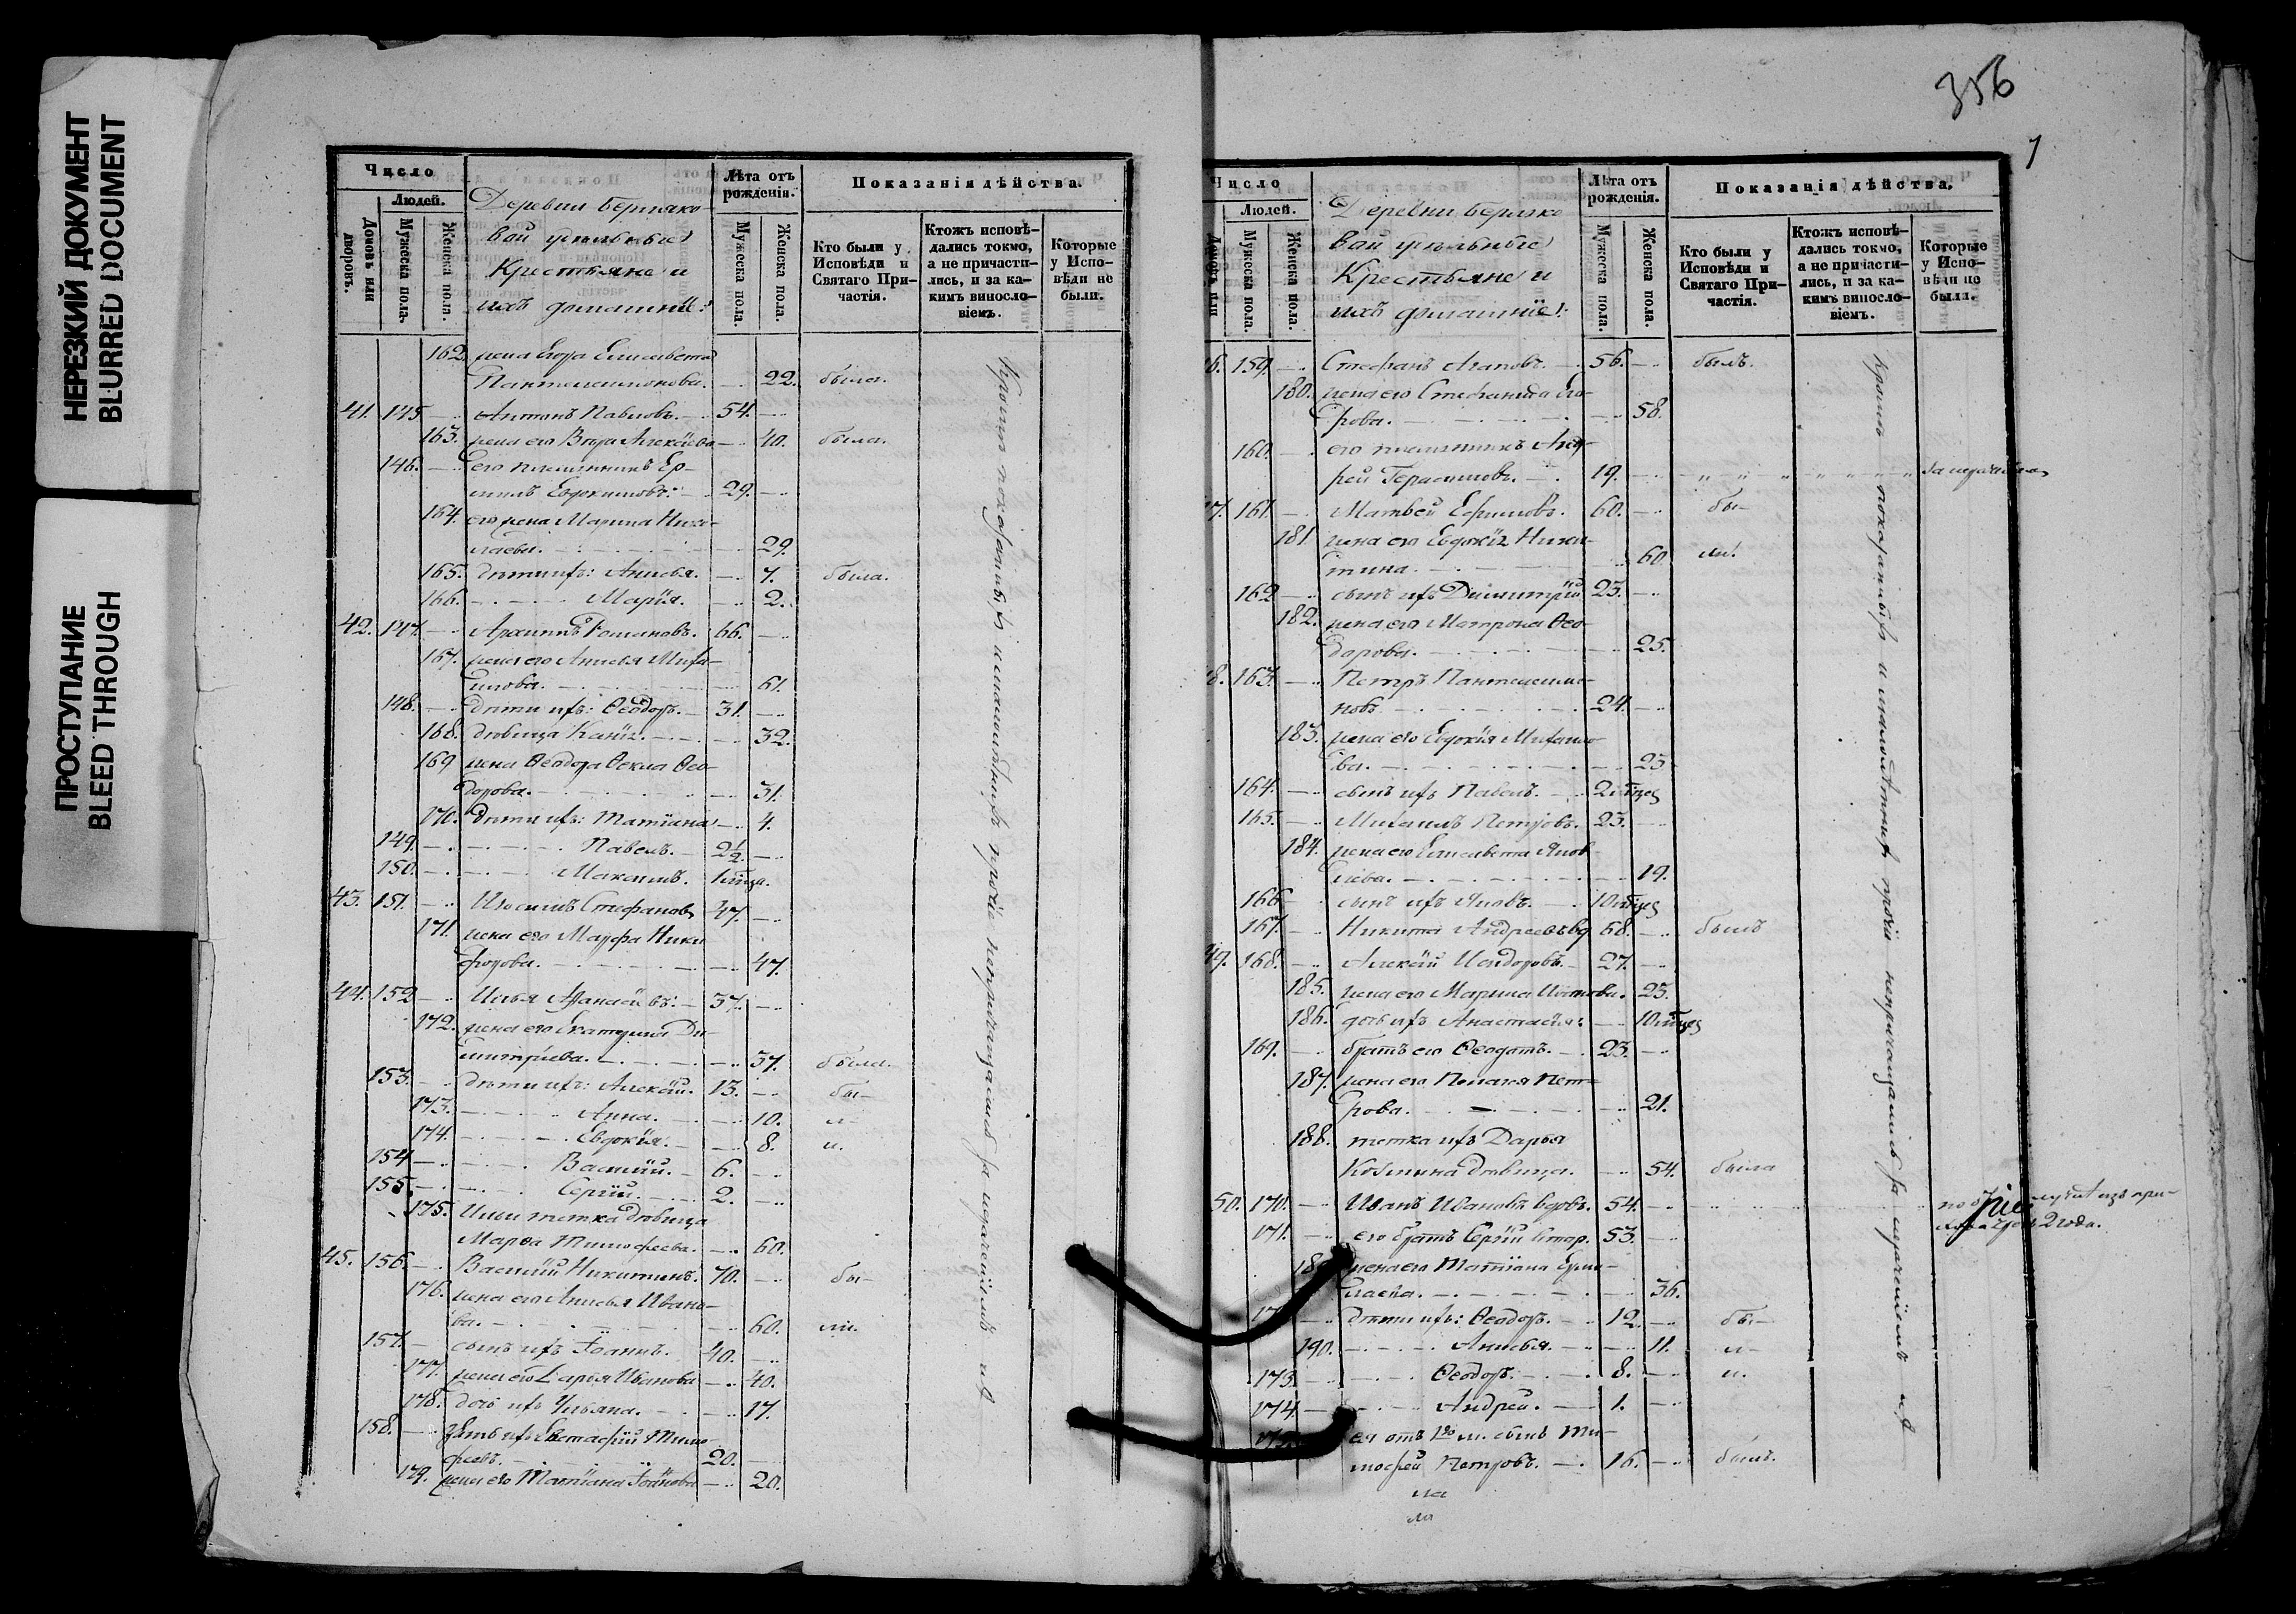 НЕРЕЗКИЙ ДОКУМЕНТ
BLURRED DOCUMENT
ПРОСТУПАНИЕ
BLEED THROUGH
Число
Людей.
Домовъ или дворовъ.
Мужеска пола.
Женска пола.
Деревни Беряко-
вай удѣльные
Крестьяне и
ихъ домашніе:
Лѣта отъ рожденія.
Мужеска пола.
Женска пола.
Показанія дѣйства.
Кто были у Исповѣди и Святаго При-частія.
Ктожъ исповѣ-дались токмо, а не причасти-лись, и за ка-кимъ винословіемъ.
Которые у Испо-вѣди не были.
162. жена Егора Елисавета
Пантелеимонова. 22. была.
41. 145 Антонъ Павловъ. 54.
163. жена его Вѣра Алексѣева 40. была.
146. его племянникъ Ер-
милъ Евдокимовъ. 29.
164. его жена Марина Нико-
лаева. 29.
165. дѣти ихъ: Анисья. 7. была.
166. Марія. 2.
42. 147. Архиппъ Романовъ. 66.
167. жена его Анисья Миха-
илова. 61.
148. дѣти ихъ: Ѳеодоръ. 31.
168. дѣвица 32.
169 жена Ѳеодора Ѳекла Ѳео-
дорова. 31.
170. дѣти ихъ: Татіана 4.
149. Павелъ. 2½
150. Максимъ. 1 мца.
43. 151. Стефановъ 47.
171. жена его Марѳа Ники-
форова. 47.
44. 152 Илья 37.
172. жена его Екатерина Ди-
митріева. 37. была.
153. дѣти ихъ: Алексѣй. 13. бы-
173. Анна. 10. л-
174. Евдокія. 8. и.
154 Василій. 6.
155. Сергій. 2.
175. Ильи тетка дѣвица
Марѳа Тимоѳеева. 60.
45. 156. Василій Никитинъ. 70. бы-
176. жена его Анисья Ивано-
ва. 60. ли.
157. сынъ ихъ Іоаннъ. 40.
177. жена его Дарья Иванова 40.
178. дочь ихъ Ульяна. 17.
158. зять ихъ Евстафій Тимо-
феевъ. 20.
179. жена его Татіана Іоаннова 20.
Кромѣ показанныхъ и малолѣтнихъ прочіе непричащались за нераченіемъ
356
7
Число
Людей.
Мужеска пола.
Женска пола.
Деревни Беряко
вай удѣльные
Крестьяне и
ихъ домашніе:
Лѣта отъ рожденія.
Мужеска пола.
Женска пола.
Показанія дѣйства.
Кто были у Исповѣди и Святаго При-частія.
Ктожъ исповѣ-дались токмо, а не причасти-лись, и за ка-кимъ винословіемъ.
Которые у Испо-вѣди не были.
6. 159. Стефанъ Агаповъ. 56. былъ.
180. жена его Стефанида Его-
рова. 58.
160. его племянникъ Анд-
рей Герасимовъ. 19.
7. 161 Матвей Ефимовъ. 60. бы-
181 жена его Евдокія Ники-
тина. 60. ли.
162 сынъ ихъ Димитрій 23.
182. жена его Матрона Ѳео-
дорова. 25.
8. 163. Петръ Пантелеимо-
новъ 24.
183. жена его Евдокія Михаило-
ва. 23
164. сынъ ихъ Павелъ. 2 мцев
165. Михаилъ Петровъ. 23.
184. жена его Елисавета Яков-
лева. 19.
166 сынъ ихъ Яковъ. 10 мцев
167. Никита Андреевъ вд 68. былъ
49. 168. Алексѣй Исидоровъ. 27.
185. жена его Марина 23.
186. дочь ихъ Анастасія 10 мцев
169. братъ его Ѳеодотъ. 23.
187. жена его Пелагея Пет-
рова. 21.
188. тетка ихъ Дарья
Козмина дѣвица. 54. была
50. 170. Иванъ Ивановъ вдовъ. 54.
2 года.
171. его братъ Сергій 53.
189 жена его Татіана Ерми-
лаева. 36.
17 дѣти ихъ: Ѳеодоръ. 12. бы-
190. Анисья. 11. л-
173. Ѳеодоръ. 8. и.
174 Андрей. 1.
175 ея отъ 1го м. сынъ Ти-
моѳей Петровъ. 16. былъ.
Кромѣ показанныхъ и малолѣтнихъ прочіе непричащались за нераченіемъ